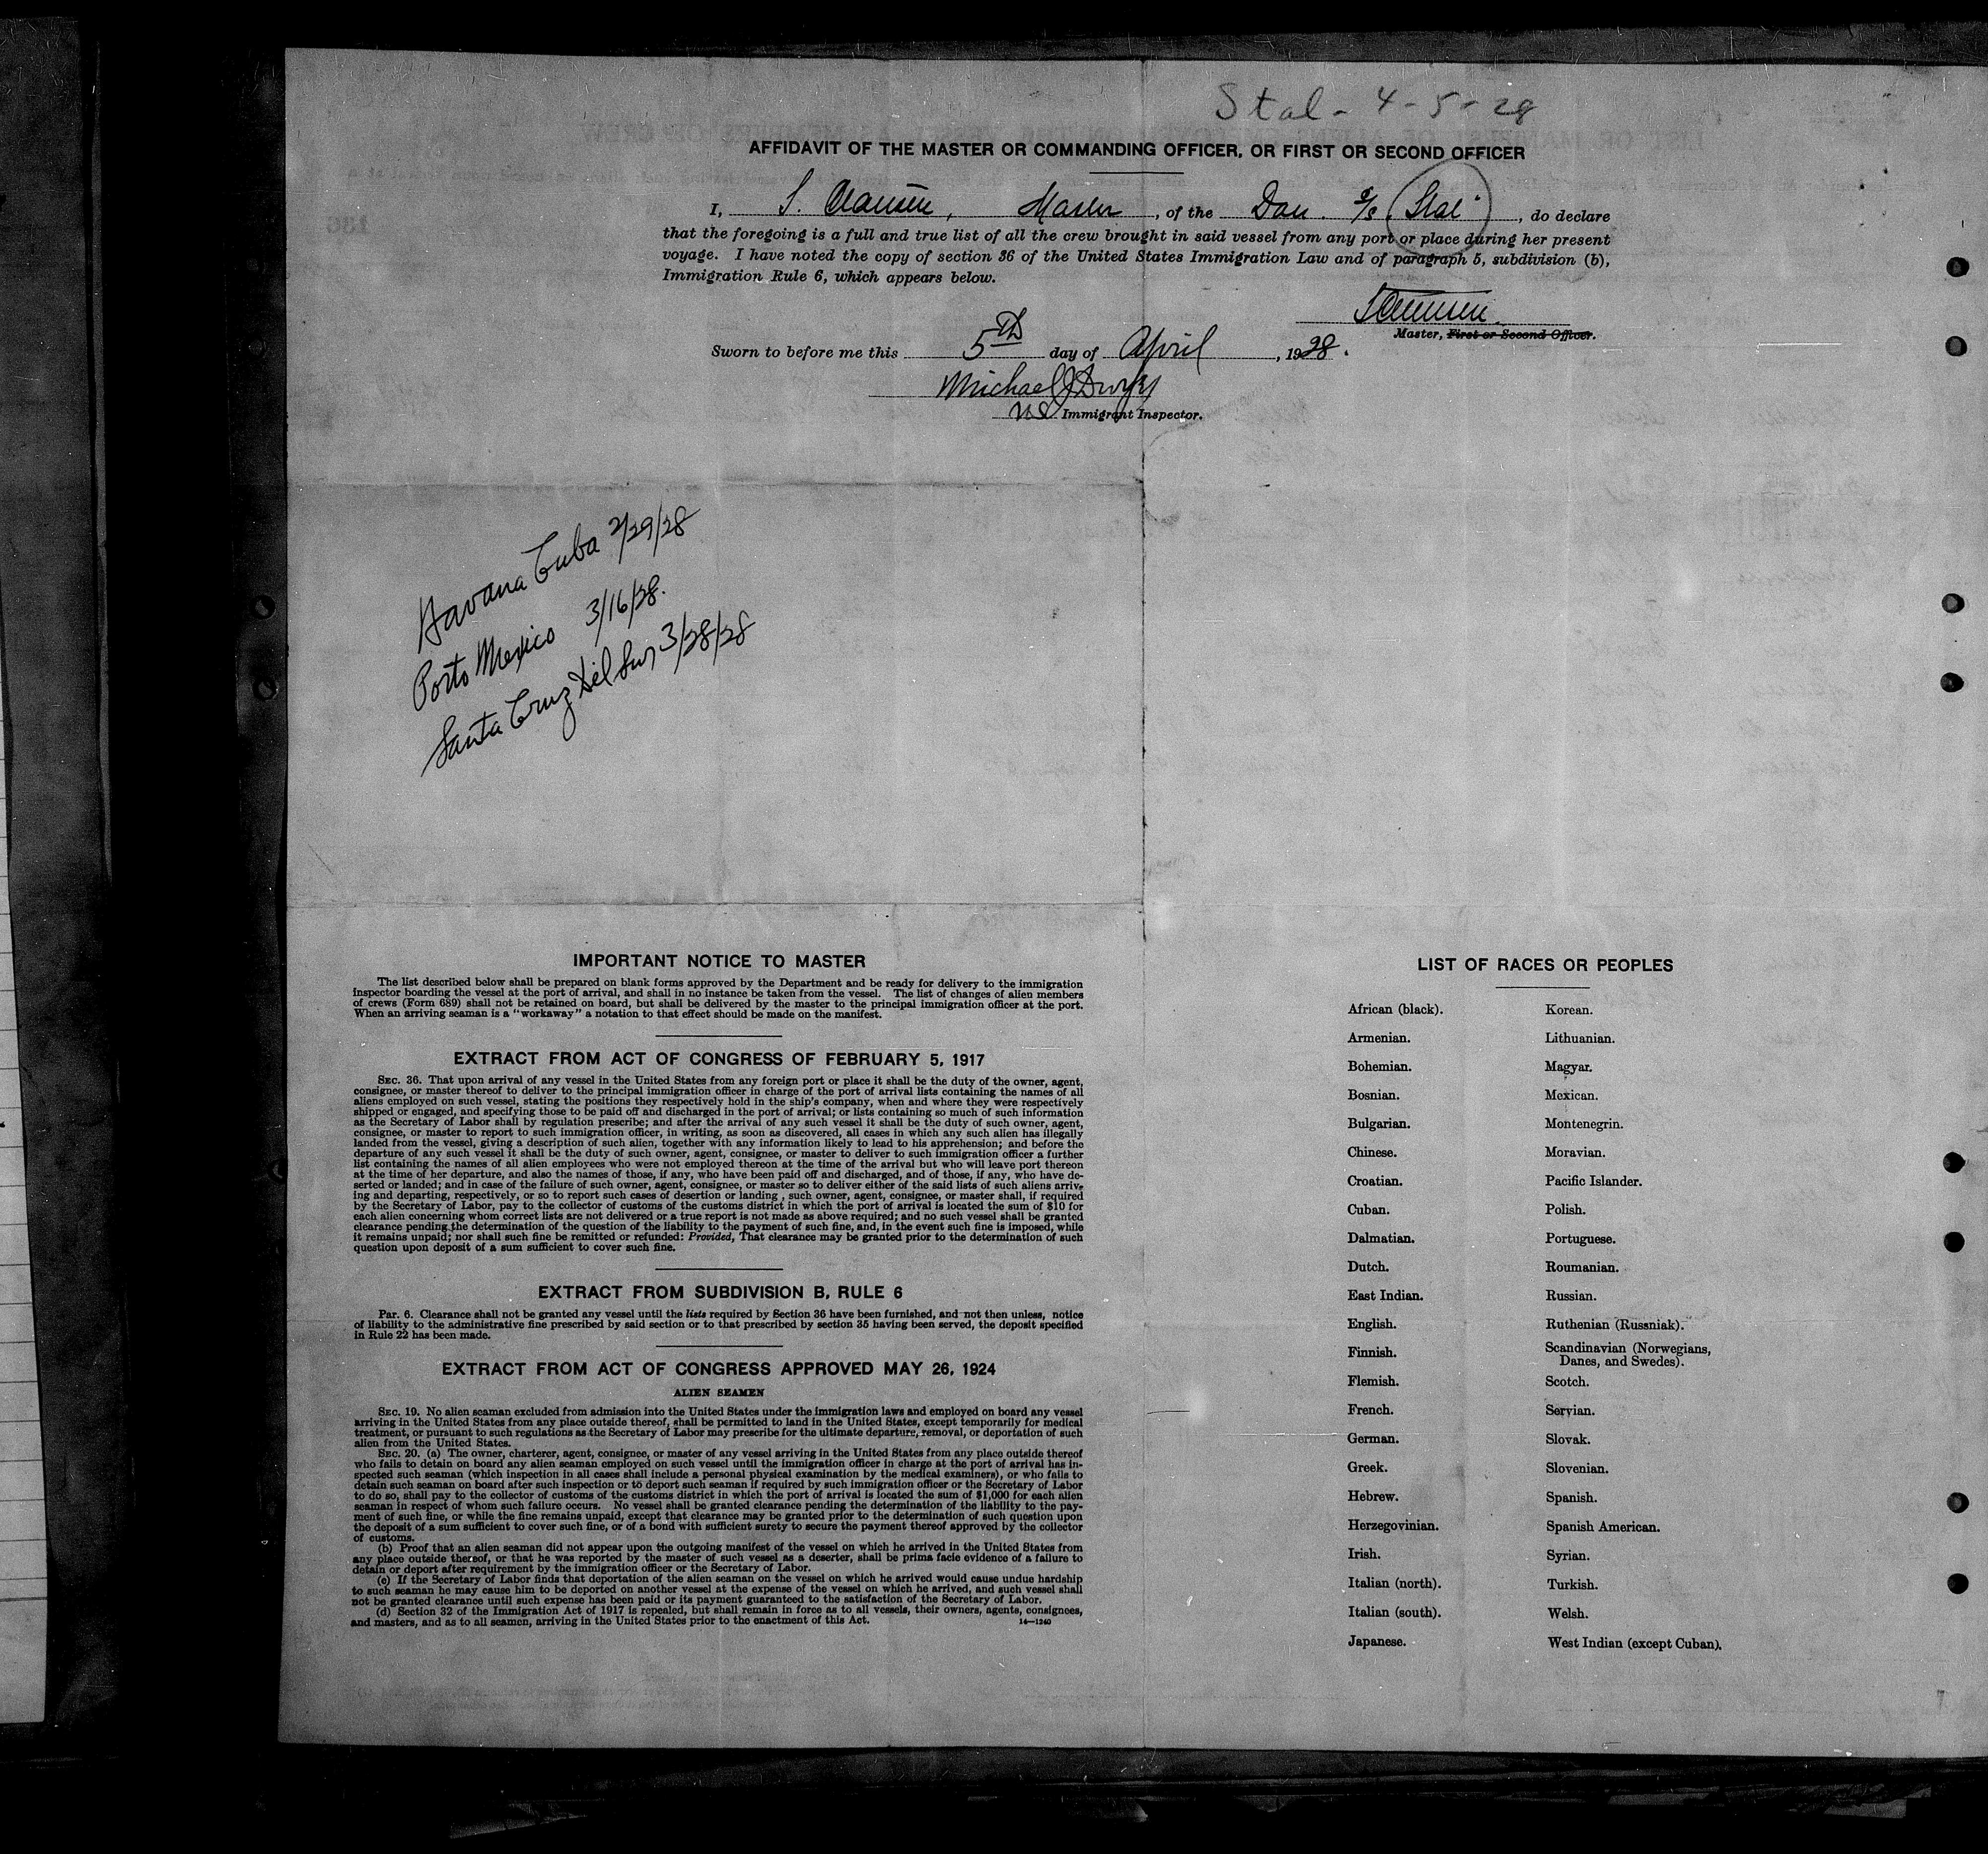 Stal - 4-5-28
AFFIDAVIT OF THE MASTER OR COMMANDING OFFICER, OR FIRST OR SECOND OFFICER
I, S. Clausen, Master, of the Dan. S/S "Stal", do declare
that the foregoing is a full and true list of all the crew brought in said vessel from any port or place during her present
voyage. I have noted the copy of section 36 of the United States Immigration Law and of paragraph 5, subdivision (b),
Immigration Rule 6, which appears below.
Master, First or Second Officer.
Sworn to before me this 5th day of April, 1928.
Michael J
US Immigrant Inspector.
Havana Cuba 2/29/28
Porto Mexico 3/16/28.
Santa Cruz Del Sur 3/28/28
IMPORTANT NOTICE TO MASTER
The list described below shall be prepared on blank forms approved by the Department and be ready for delivery to the immigration
inspector boarding the vessel at the port of arrival, and shall in no instance be taken from the vessel. The list of changes of alien members
of crews (Form 689) shall not be retained on board, but shall be delivered by the master to the principal immigration officer at the port.
When an arriving seaman is a "workaway" a notation to that effect should be made on the manifest.
EXTRACT FROM ACT OF CONGRESS OF FEBRUARY 5, 1917
SEC. 36. That upon arrival of any vessel in the United States from any foreign port or place it shall be the duty of the owner, agent,
consignee, or master thereof to deliver to the principal immigration officer in charge of the port of arrival lists containing the names of all
aliens employed on such vessel, stating the positions they respectively hold in the ship's company, when and where they were respectively
shipped or engaged, and specifying those to be paid off and discharged in the port of arrival; or lists containing so much of such information
as the Secretary of Labor shall by regulation prescribe; and after the arrival of any such vessel it shall be the duty of such owner, agent,
consignee, or master to report to such immigration officer, in writing, as soon as discovered, all cases in which any such alien has illegally
landed from the vessel, giving a description of such alien, together with any information likely to lead to his apprehension; and before the
departure of any such vessel it shall be the duty of such owner, agent, consignee, or master to deliver to such immigration officer a further
list containing the names of all alien employees who were not employed thereon at the time of the arrival but who will leave port thereon
at the time of her departure, and also the names of those, if any, who have been paid off and discharged, and of those, if any, who have de-
serted or landed; and in case of the failure of such owner, agent, consignee, or master so to deliver either of the said lists of such aliens arriv-
ing and departing, respectively, or so to report such cases of desertion or landing, such owner, agent, consignee, or master shall, if required
by the Secretary of Labor, pay to the collector of customs of the customs district in which the port of arrival is located the sum of $10 for
each alien concerning whom correct lists are not delivered or a true report is not made as above required; and no such vessel shall be granted
clearance pending the determination of the question of the liability to the payment of such fine, and, in the event such fine is imposed, while
it remains unpaid; nor shall such fine be remitted or refunded: Provided, That clearance may be granted prior to the determination of such
question upon deposit of a sum sufficient to cover such fine.
EXTRACT FROM SUBDIVISION B, RULE 6
Par. 6. Clearance shall not be granted any vessel until the lists required by Section 36 have been furnished, and not then unless, notice
of liability to the administrative fine prescribed by said section or to that prescribed by section 35 having been served, the deposit specified
in Rule 22 has been made.
EXTRACT FROM ACT OF CONGRESS APPROVED MAY 26, 1924
ALIEN SEAMEN
SEC. 19. No alien seaman excluded from admission into the United States under the immigration laws and employed on board any vessel
arriving in the United States from any place outside thereof, shall be permitted to land in the United States, except temporarily for medical
treatment, or pursuant to such regulations as the Secretary of Labor may prescribe for the ultimate departure, removal, or deportation of such
alien from the United States.
SEC. 20. (a) The owner, charterer, agent, consignee, or master of any vessel arriving in the United States from any place outside thereof
who fails to detain on board any alien seaman employed on such vessel until the immigration officer in charge at the port of arrival has in-
spected such seaman (which inspection in all cases shall include a personal physical examination by the medical examiners), or who fails to
detain such seaman on board after such inspection or to deport such seaman if required by such immigration officer or the Secretary of Labor
to do so, shall pay to the collector of customs of the customs district in which the port of arrival is located the sum of $1,000 for each alien
seaman in respect of whom such failure occurs. No vessel shall be granted clearance pending the determination of the liability to the pay-
ment of such fine, or while the fine remains unpaid, except that clearance may be granted prior to the determination of such question upon
the deposit of a sum sufficient to cover such fine, or of a bond with sufficient surety to secure the payment thereof approved by the collector
of customs.
(b) Proof that an alien seaman did not appear upon the outgoing manifest of the vessel on which he arrived in the United States from
any place outside thereof, or that he was reported by the master of such vessel as a deserter, shall be prima facie evidence of a failure to
detain or deport after requirement by the immigration officer or the Secretary of Labor.
(c) If the Secretary of Labor finds that deportation of the alien seaman on the vessel on which he arrived would cause undue hardship
to such seaman he may cause him to be deported on another vessel at the expense of the vessel on which he arrived, and such vessel shall
not be granted clearance until such expense has been paid or its payment guaranteed to the satisfaction of the Secretary of Labor.
(d) Section 32 of the Immigration Act of 1917 is repealed, but shall remain in force as to all vessels, their owners, agents, consignees,
and masters, and as to all seamen, arriving in the United States prior to the enactment of this Act. 14—1240
LIST OF RACES OR PEOPLES
African (black). Korean.
Armenian. Lithuanian.
Bohemian. Magyar.
Bosnian. Mexican.
Bulgarian. Montenegrin.
Chinese. Moravian.
Croatian. Pacific Islander.
Cuban. Polish.
Dalmatian. Portuguese.
Dutch. Roumanian.
East Indian. Russian.
English. Ruthenian (Russniak).
Finnish. Scandinavian (Norwegians,
Danes, and Swedes).
Flemish. Scotch.
French. Servian.
German. Slovak.
Greek. Slovenian.
Hebrew. Spanish.
Herzegovinian. Spanish American.
Irish. Syrian.
Italian (north). Turkish.
Italian (south). Welsh.
Japanese. West Indian (except Cuban).